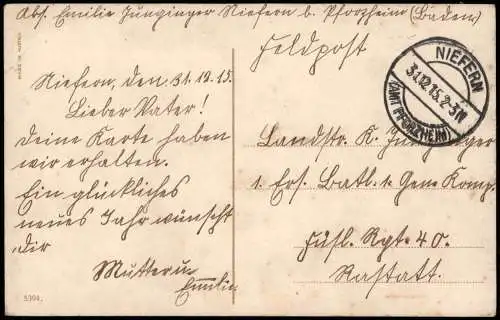 Abs. Emilie Junginger Niefern b. Pforzheim (Baden)
Feldpost
NIEFERN
31.12.15. 2-3N
(AMT PFORZHEIM)
Niefern, den 31.12.15.
Lieber Vater!
Deine Karte haben
wir erhalten.
Ein glückliches
neues Jahr wünscht
dir
Mutter u.
Emilie
Landstr. K. Junginger
1. Ers. Batl. 1. Gen. Komp.
Füsl. Rgt. 40.
Rastatt.
5304.